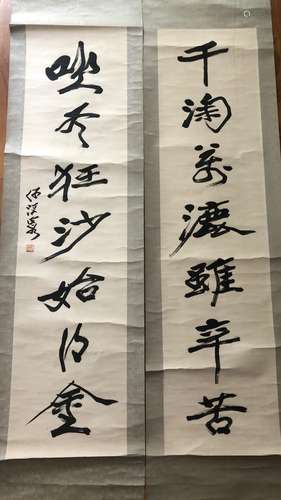 千淘萬漉雖辛苦
吹尽狂沙始得金